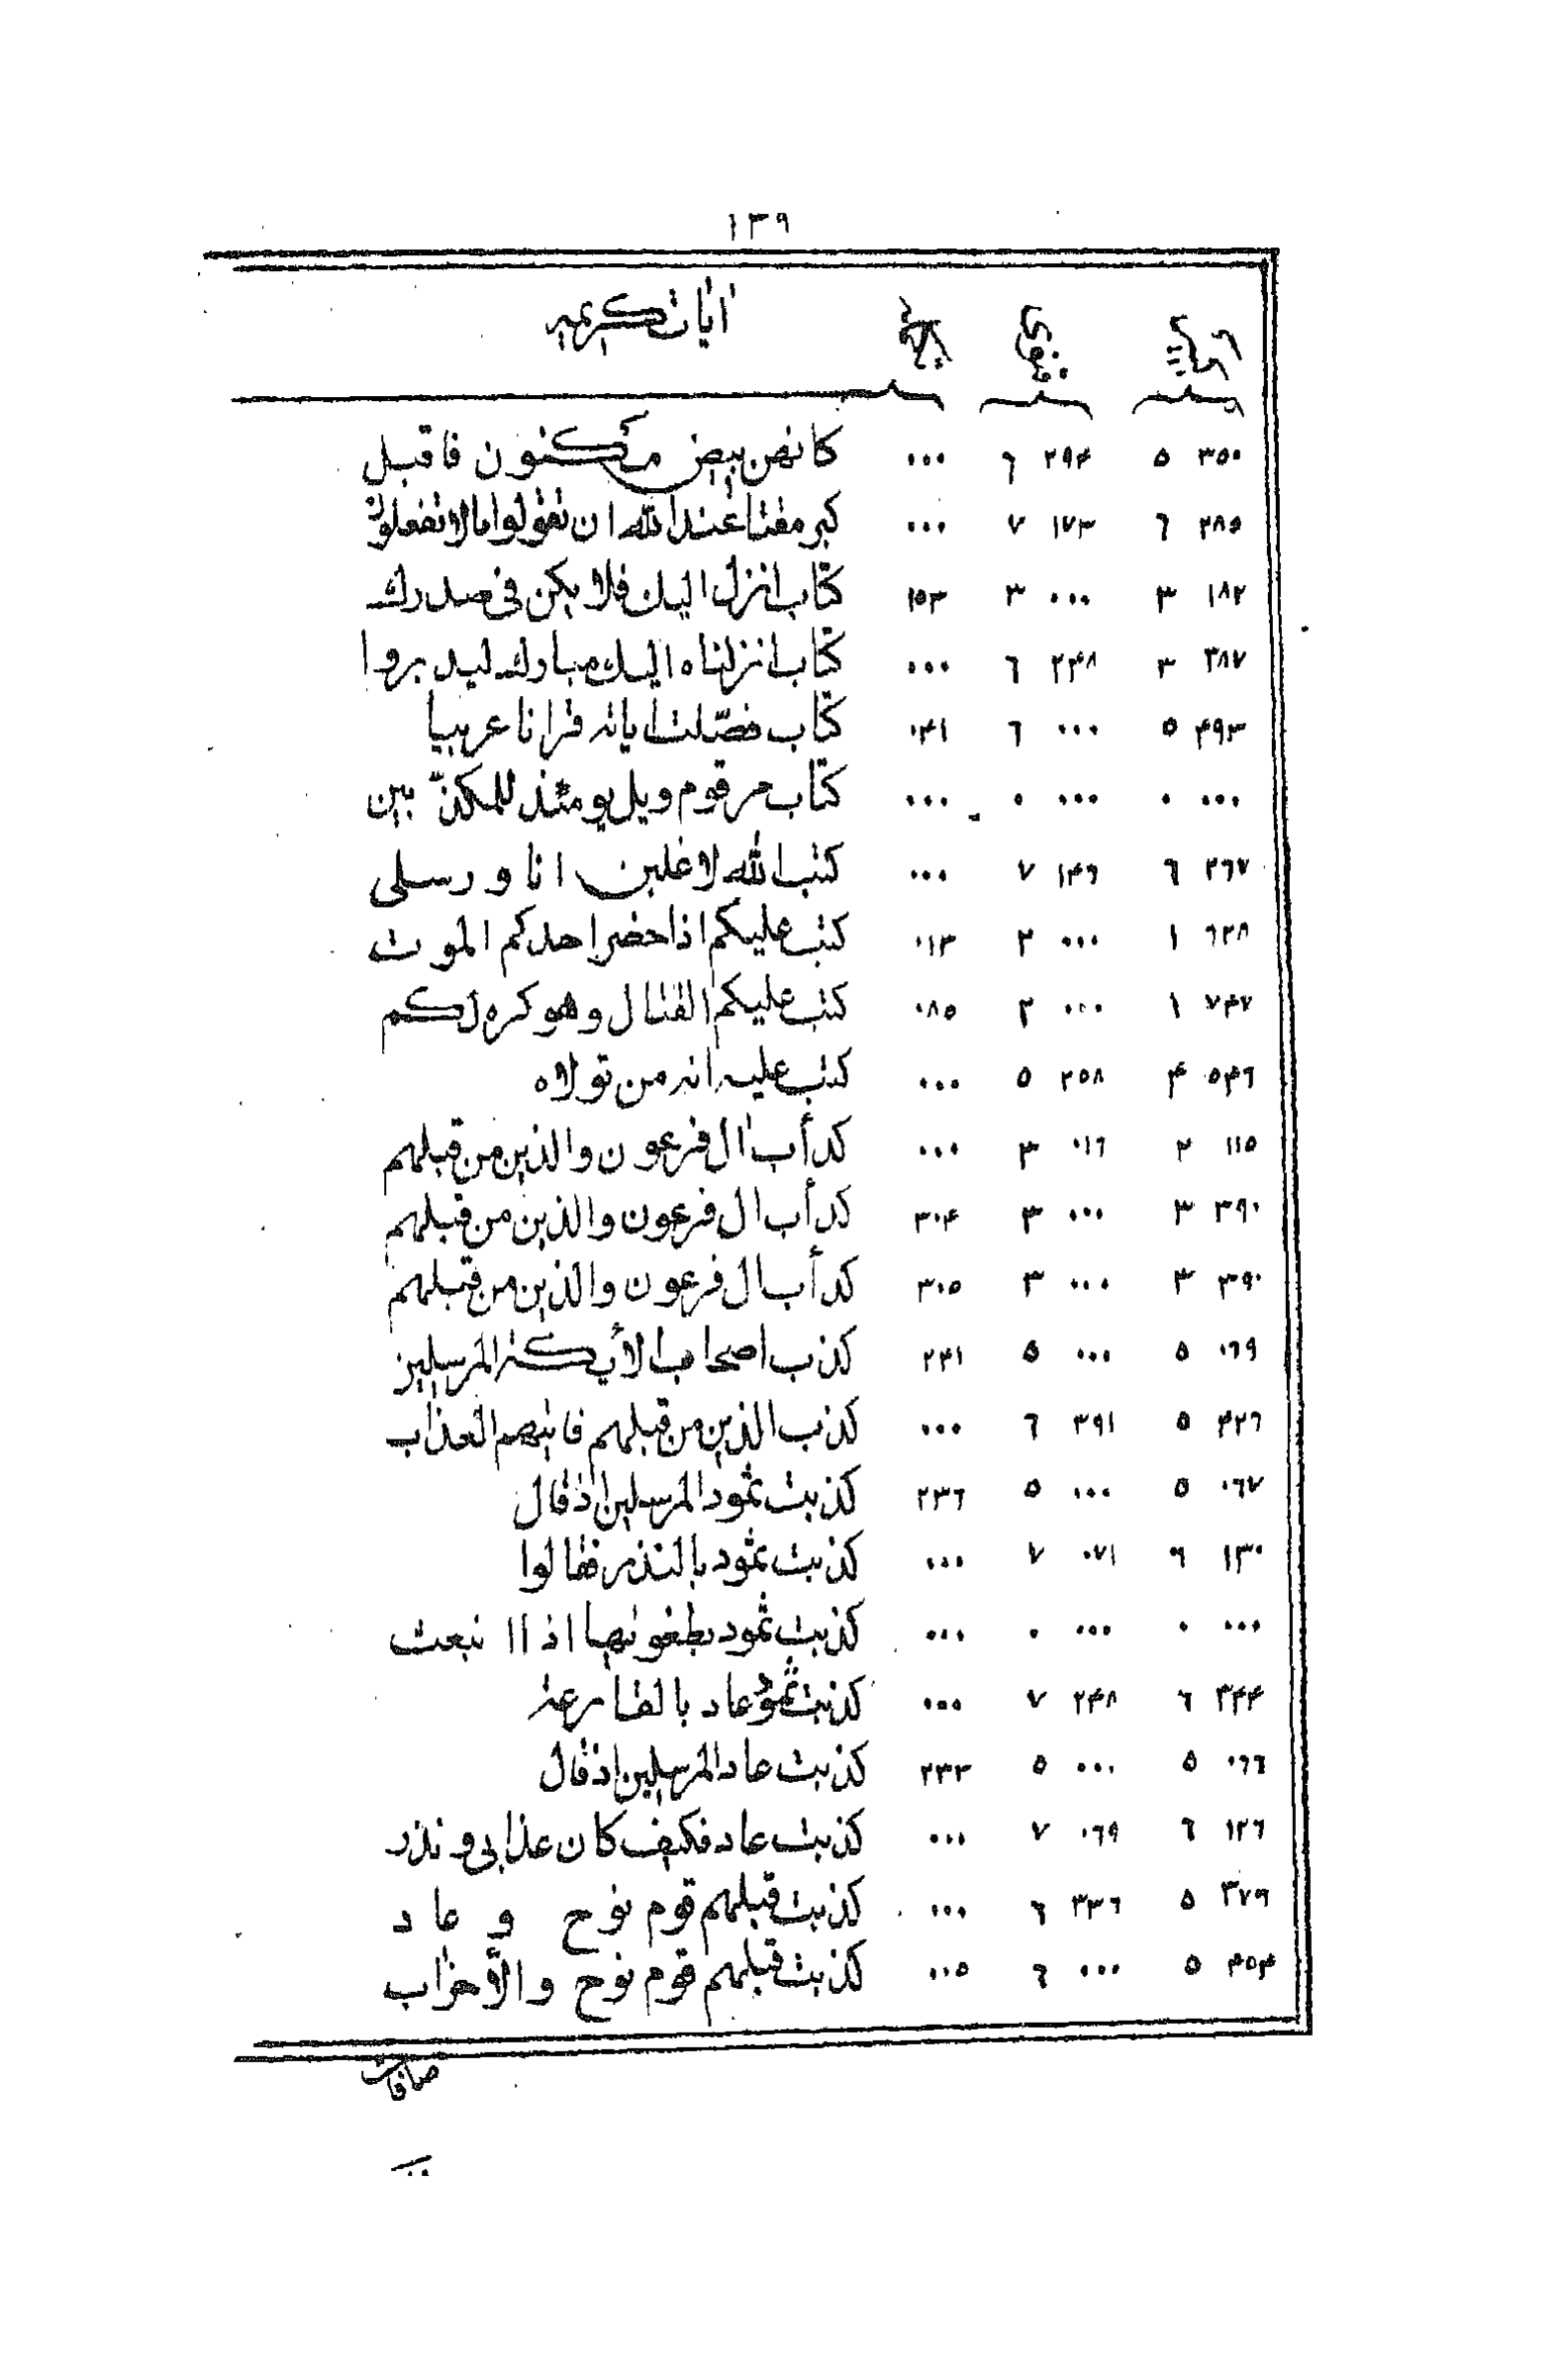 ١٣٩
اٰيات كريمه
٣٥٠ ٥ ٢٩٤ ٦ ٠٠٠ كانهن بيض مكنون فاقبل
٢٨٥ ٦ ١٧٣ ٧ ٠٠٠ كبر مقتا عند الله ان تقولوا مالا تفعلون
١٨٢ ٣ ٠٠٠ ٣ ١٥٣ كتاب انزل اليك فلا يكن فى صدرك
٣٨٧ ٣ ٢٤٨ ٦ ٠٠٠ كتاب انزلناه اليك مبارك ليدبروا
٤٩٣ ٥ ٠٠٠ ٦ ٠٤١ كتاب فصّلت اياته قرانا عربيا
٠٠٠ ٠ ٠٠٠ ٠ ٠٠٠ كتاب مرقوم ويل يومئذ للمكذّبين
٢٦٧ ٦ ١٤٦ ٧ ٠٠٠ كتب الله لاغلبن انا و رسلى
٦٢٨ ١ ٠٠٠ ٢ ٠١٣ كتب عليكم اذا حضر احدكم الموت
٧٤٧ ١ ٠٠٠ ٢ ٠٨٥ كتب عليكم القتال وهو كره لكم
٥٤٦ ٤ ٢٥٨ ٥ ٠٠٠ كتب عليه انه من تولاه
١١٥ ٢ ٠١٦ ٣ ٠٠٠ كدأب اٰل فرعون والذين من قبلهم
٣٩٠ ٣ ٠٠٠ ٣ ٣٠٤ كدأب ال فرعون والذين من قبلهم
٣٩٠ ٣ ٠٠٠ ٣ ٣٠٥ كدأب ال فرعون والذين من قبلهم
٠٦٩ ٥ ٠٠٠ ٥ ٢٤١ كذب اصحاب الأيكة المرسلين
٤٢٦ ٥ ٣٩١ ٦ ٠٠٠ كذب الذين من قبلهم فاتيهم العذاب
٠٦٧ ٥ ٠٠٠ ٥ ٢٣٦ كذبت ثمود المرسلين اذ قال
١٣٠ ٦ ٠٧١ ٧ ٠٠٠ كذبت ثمود بالنذر فقالوا
٠٠٠ ٠ ٠٠٠ ٠ ٠٠٠ كذبت ثمود بطغويها اذ اانبعث
٣٤٤ ٦ ٢٤٨ ٧ ٠٠٠ كذبت ثمود وعاد بالقارعة
٠٦٦ ٥ ٠٠٠ ٥ ٢٣٣ كذبت عاد المرسلين اذ قال
١٢٦ ٦ ٠٦٩ ٧ ٠٠٠ كذبت عاد فكيف كان عذابى و نذر
٣٧٩ ٥ ٣٣٦ ٦ ٠٠٠ كذبت قبلهم قوم نوح و عاد
٤٥٤ ٥ ٠٠٠ ٦ ٠٠٥ كذبت قبلهم قوم نوح والأحزاب
صافات